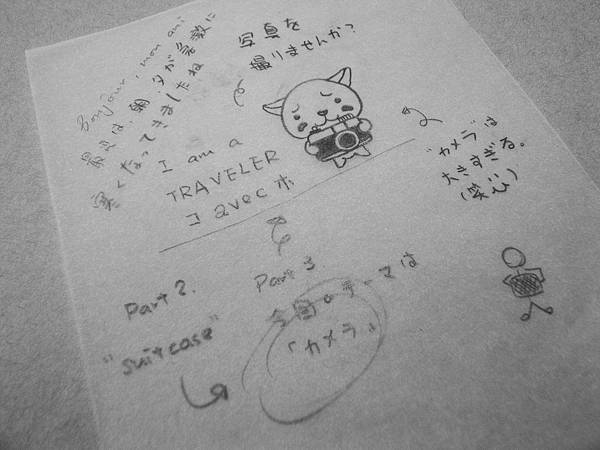 Bonjour, mon ami
最近は、朝・夕が急激に
寒くなってきましたね
写真を
撮りませんか?
I am a
TRAVELER
コ avec ボ
"カメラ"は
大きすぎる。
(笑)
Part 2.
"suitcase"
Part 3.
今回のテーマは
「カメラ」